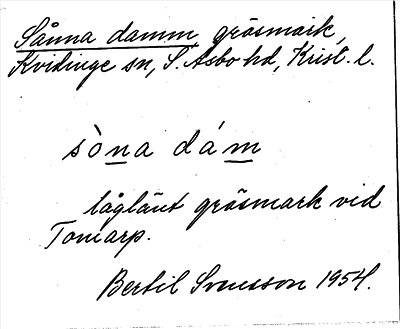 Sånna damm, gräsmark,
Kvidinge sn, S. Asbo hd, Krist. l.
sòna dám
låglänt gräsmark vid
Tomarp.
Bertil Svensson 1954.